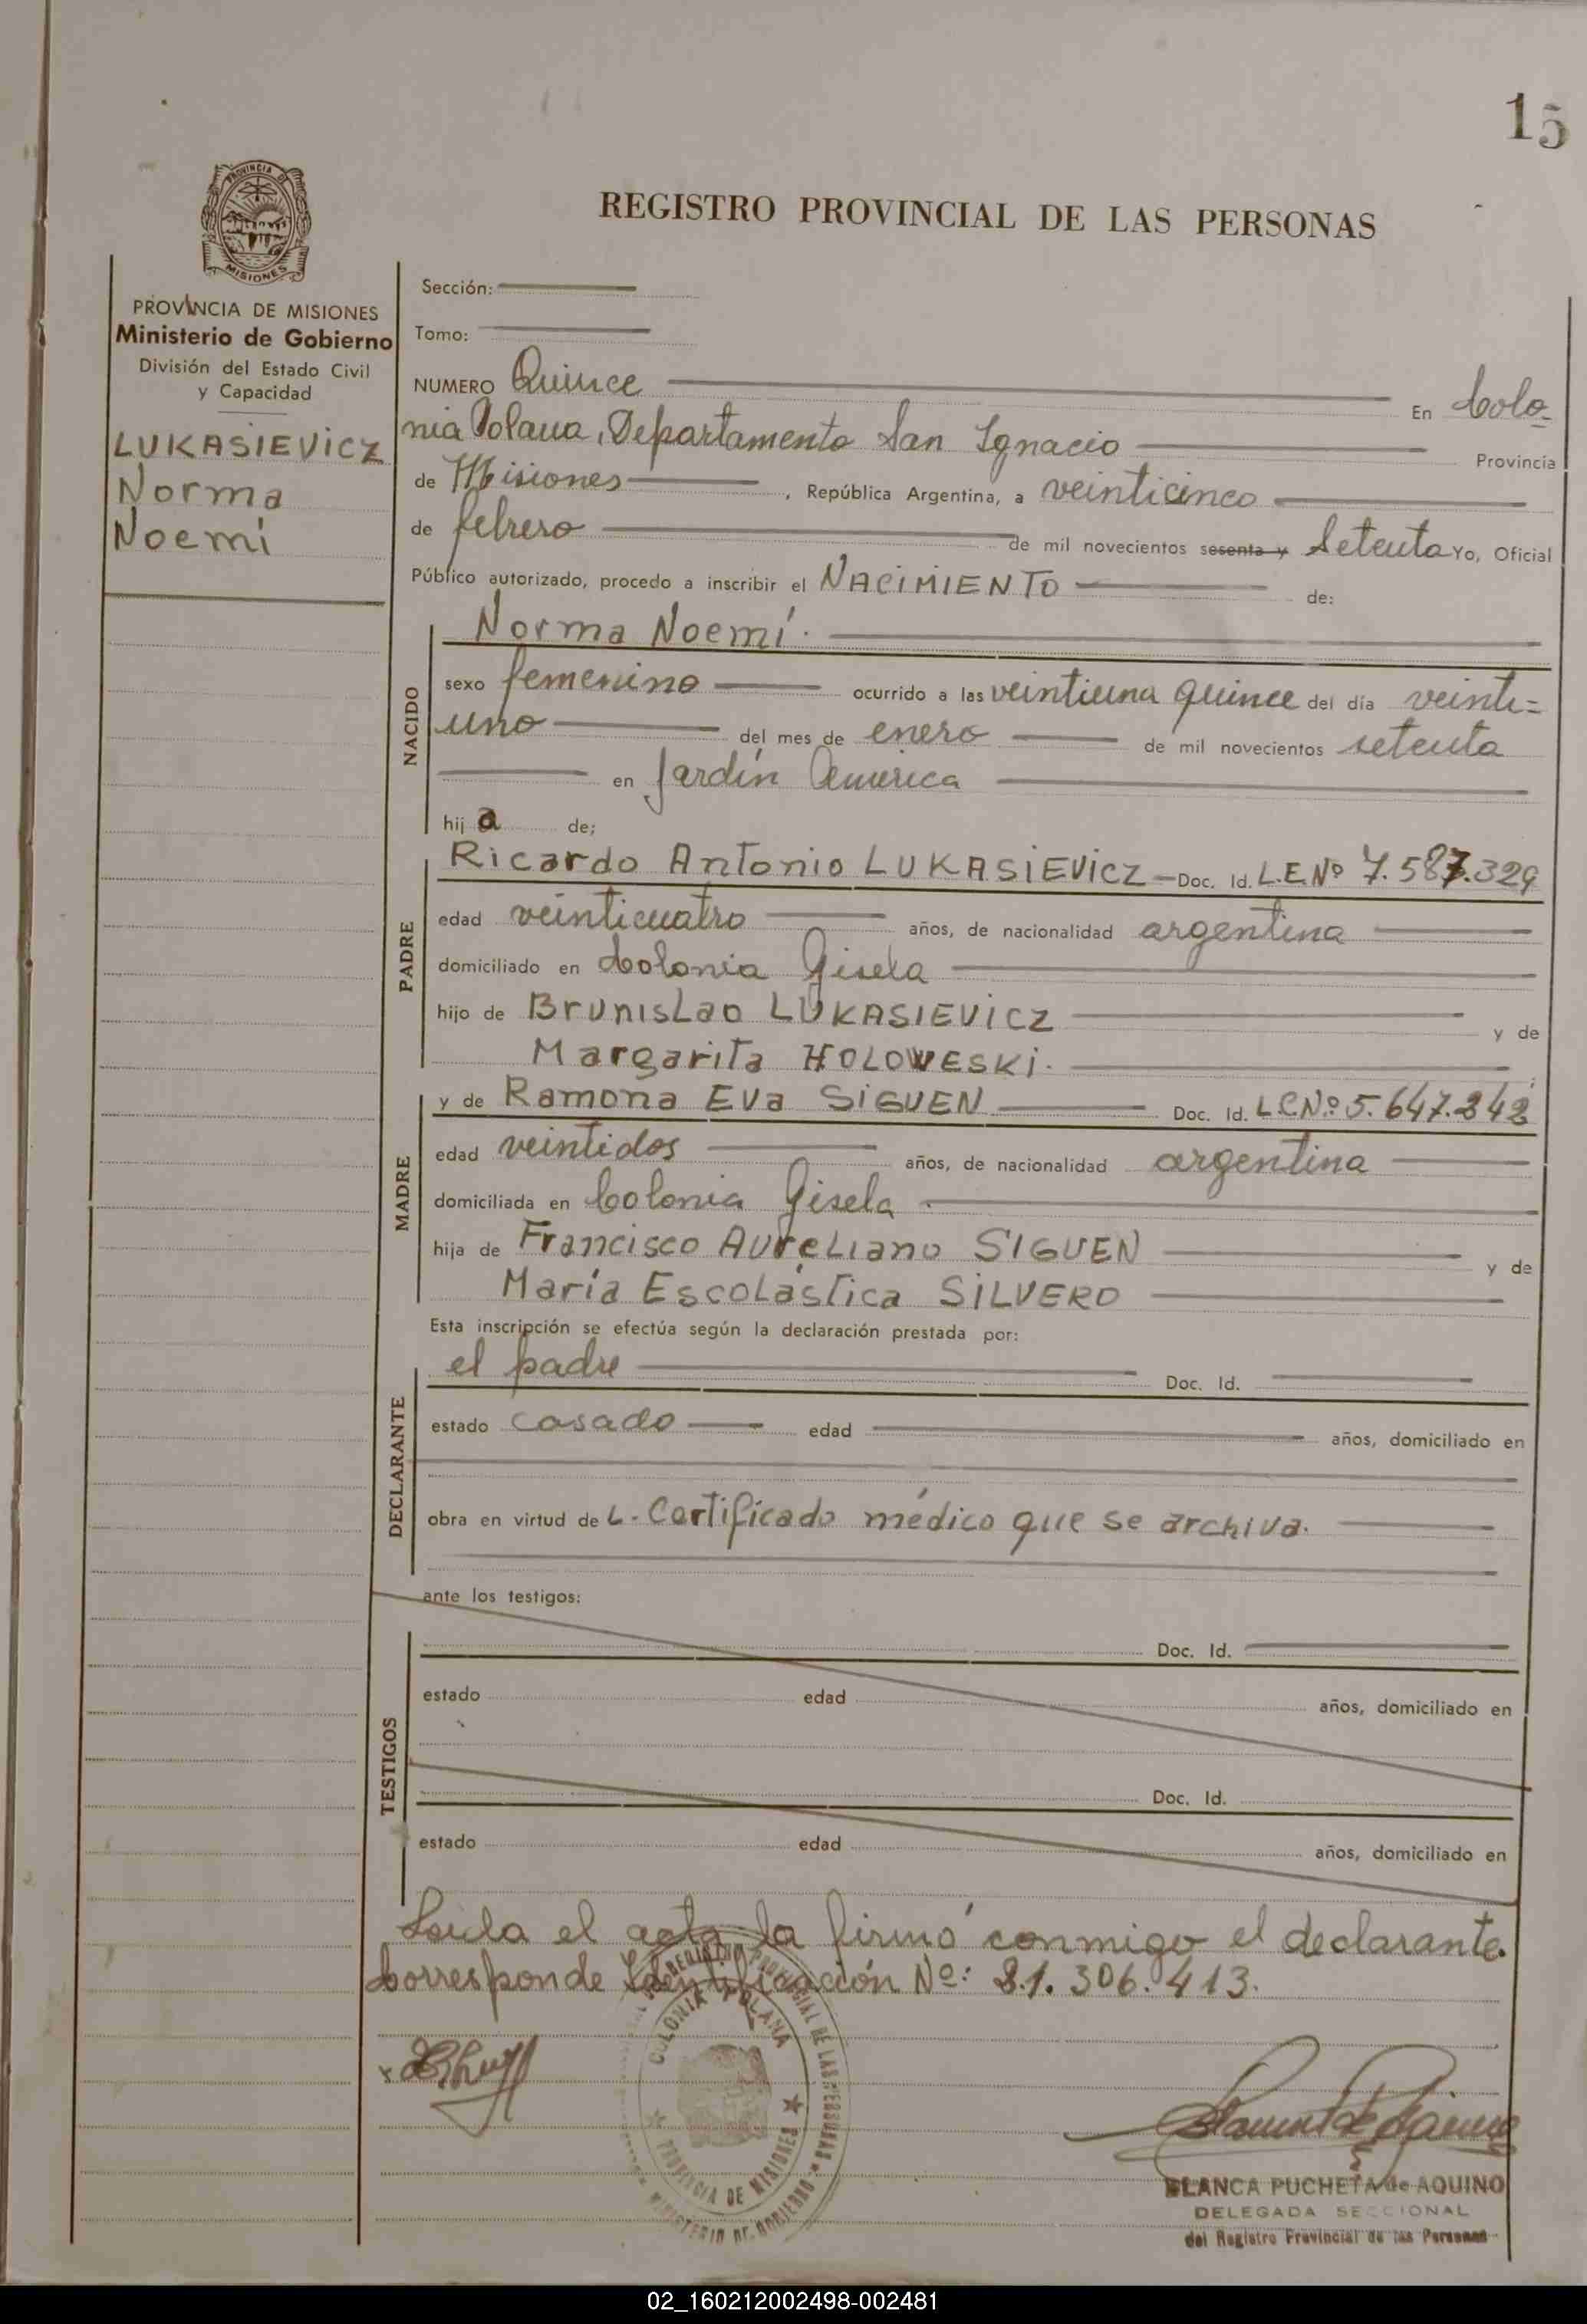 15
REGISTRO PROVINCIAL DE LAS PERSONAS
PROVINCIA DE
MISIONES
PROVINCIA DE MISIONES
Ministerio de Gobierno
División del Estado Civil
y Capacidad
LUKASIEVICZ
Norma
Noemí
Sección:
Tomo:
NUMERO Quince En Colo-
nia Polana, Departamento San Ignacio Provincia
de Misiones , República Argentina, a veinticinco
de febrero de mil novecientos sesenta y Setenta Yo, Oficial
Público autorizado, procedo a inscribir el NACIMIENTO de:
Norma Noemí.
NACIDO
sexo femenino ocurrido a las veintiuna quince del día veinti=
uno del mes de enero de mil novecientos setenta
en Jardín America
hij a de;
Ricardo Antonio LUKASIEVICZ - Doc. Id. L.E.Nº 7.587.329
PADRE
edad veinticuatro años, de nacionalidad argentina
domiciliado en Colonia Gisela
hijo de Brunislao LUKASIEVICZ y de
Margarita HOLOWESKI.
y de Ramona Eva SIGUEN Doc. Id. L.C.Nº 5.647.242
MADRE
edad veintidos años, de nacionalidad argentina
domiciliada en Colonia Gisela
hija de Francisco Aureliano SIGUEN y de
María Escolástica SILVERO
Esta inscripción se efectúa según la declaración prestada por:
el padre Doc. Id.
DECLARANTE
estado casado edad años, domiciliado en
obra en virtud de L. Certificado médico que se archiva.
ante los testigos:
Doc. Id.
TESTIGOS
estado edad años, domiciliado en
Doc. Id.
estado edad años, domiciliado en
Leída el acta, la firmó conmigo el declarante.
Corresponde Identificación Nº: 21.306.413.
REGISTRO PROVINCIAL DE LAS PERSONAS
COLONIA POLANA
PROVINCIA DE MISIONES
MINISTERIO DE GOBIERNO
BLANCA PUCHETA de AQUINO
DELEGADA SECCIONAL
del Registro Provincial de las Personas
02_160212002498-002481